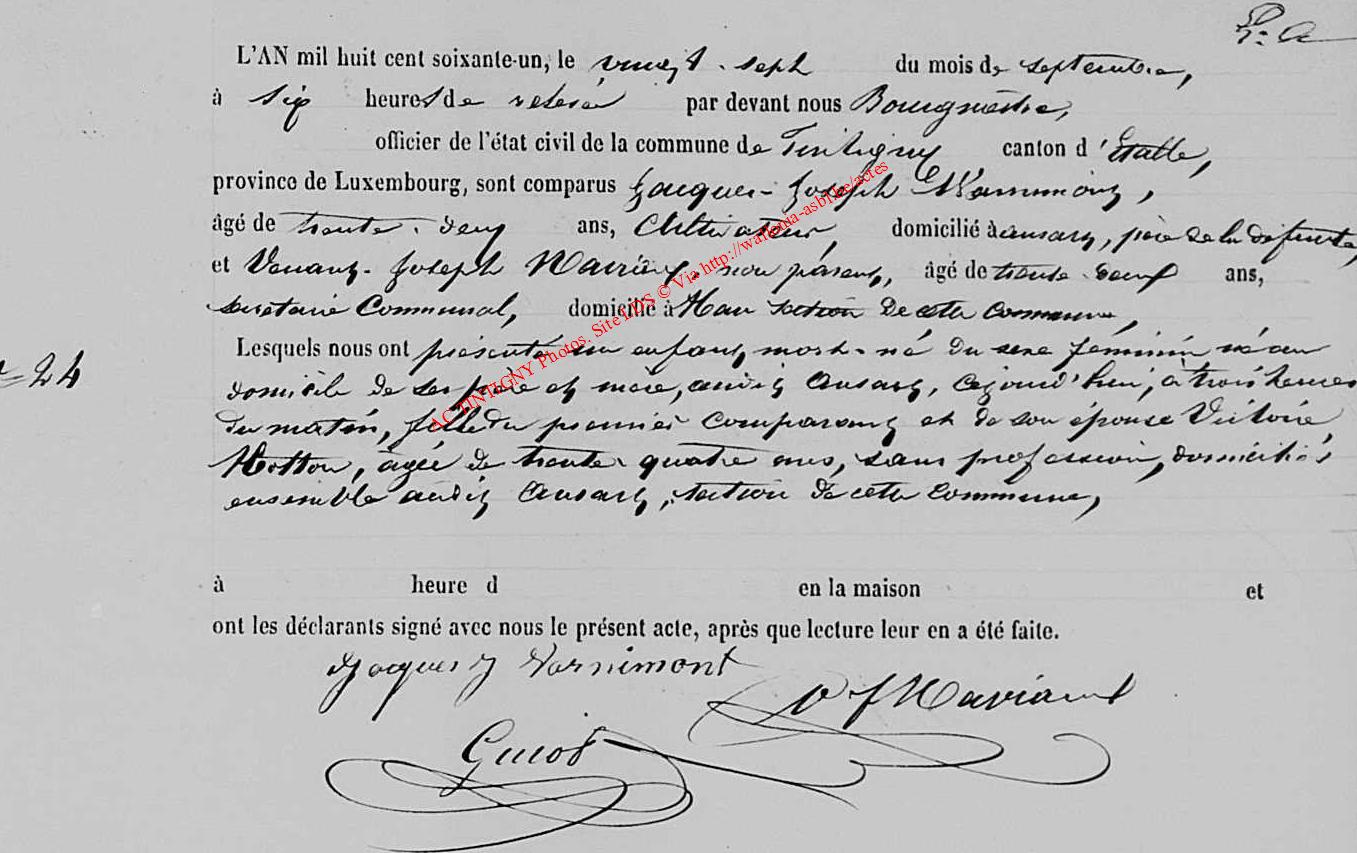 L'AN mil huit cent soixante-un, le vingt-sept du mois de septembre,
à six heures de relevée par devant nous Bourgmestre,
officier de l'état civil de la commune de Tintigny canton d'Etalle,
province de Luxembourg, sont comparus Jacques-Joseph Warnimont,
âgé de trente-deux ans, Cultivateur, domicilié à ansart, père de la défunte,
et Venant-Joseph Maviant, non parent, âgé de trente ans,
secrétaire Communal, domicilié à Han section de cette commune,
Lesquels nous ont présenté un enfant mort-né du sexe féminin né au
N° 24
domicile de ses père et mère, audit Ansart, cejourd'hui, à trois heures
du matin, fille du premier comparant et de son épouse Victoire
Hotton, âgée de trente-quatre ans, sans profession, domiciliés
ensemble audit Ansart, section de cette commune,
à heure d en la maison et
ont les déclarants signé avec nous le présent acte, après que lecture leur en a été faite.
Jacques J Warnimont
V J Maviant
Guiot
AC TINTIGNY Photos. Site LDS © Via http://wallonia-asbl.be/actes